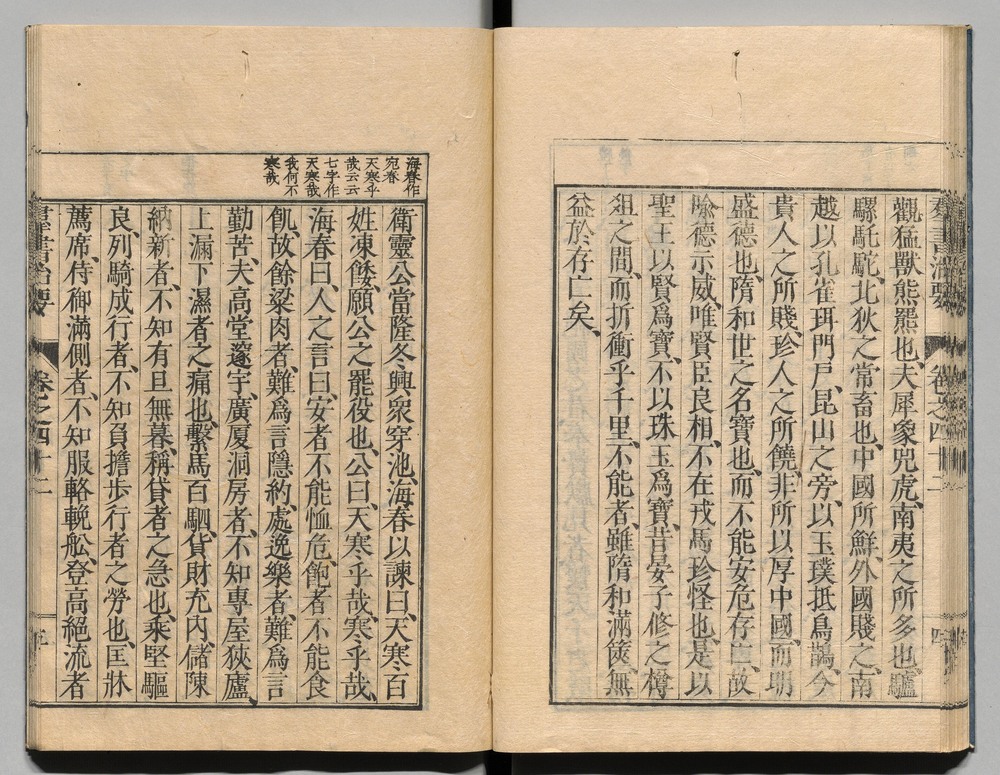 羣書治要 卷之四十二 四
觀猛獸熊羆也、夫犀象兕虎、南夷之所多也、驢
騾馲駝、北狄之常畜也、中國所鮮、外國賤之、南
越以孔雀珥門戶、昆山之旁、以玉璞抵鳥鵲、今
貴人之所賤、珍人之所饒、非所以厚中國、而明
盛德也、隋和世之名寶也、而不能安危存亡、故
喩德示威、唯賢臣良相、不在戎馬珍怪也、是以
聖王以賢爲寶、不以珠玉爲寶、昔晏子修之樽
俎之間、而折衝乎千里、不能者、雖隋和滿篋、無
益於存亡矣、
海春作
宛春
天寒乎
哉云云
七字作
天寒哉
我何不
寒哉
衛靈公當隆冬興衆穿池、海春以諫曰、天寒百
姓凍餧、願公之罷役也、公曰、天寒乎哉、寒乎哉、
海春曰、人之言曰、安者不能恤危、飽者不能食
飢、故餘粱肉者、難爲言隱約、處逸樂者、難爲言
勤苦、夫高堂邃宇、廣厦洞房者、不知專屋狹廬、
上漏下濕者之痛也、繫馬百駟、貨財充内、儲陳
納新者、不知有旦無暮、稱貸者之急也、乘堅驅
良、列騎成行者、不知負擔步行者之勞也、匡牀
薦席、侍御滿側者、不知服輅輓舩、登高絕流者
羣書治要 卷之四十二 五